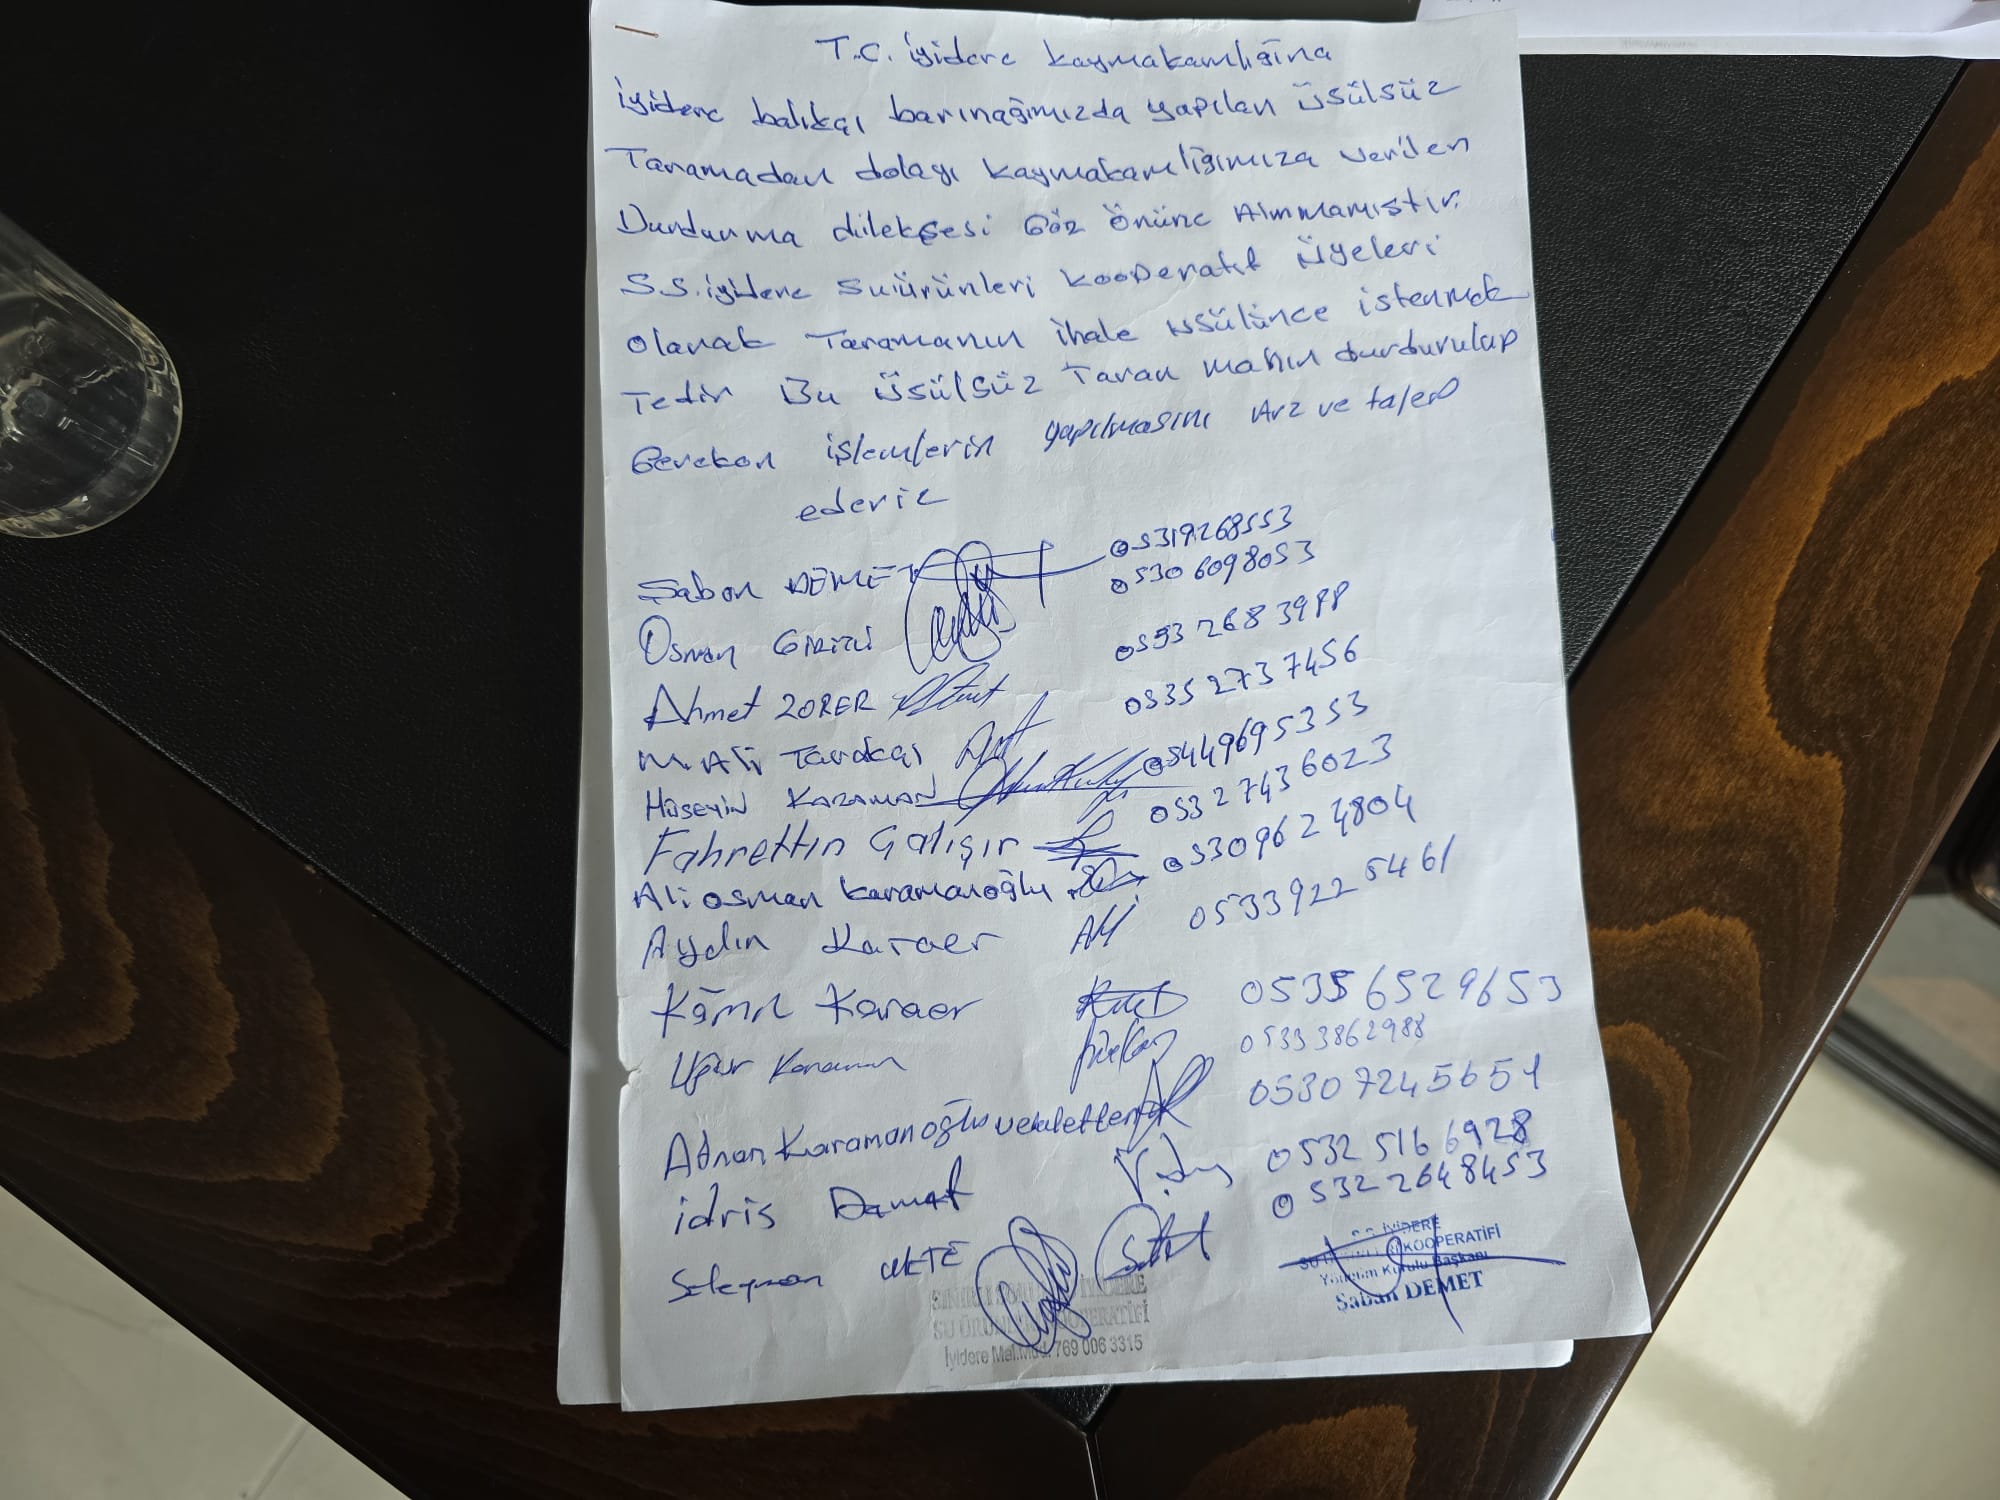 T.C. iyidere kaymakamlığına
iyidere balıkçı barınağımızda yapılan üsülsüz
Taramadan dolayı kaymakamlığımıza verilen
Durdurma dilekçesi Göz önüne Alınmamıştır.
S.S. iyidere Suürünleri kooperatif üyeleri
olarak Taramanın ihale usülünce istenmek
Tedir Bu üsülsüz Taramanın durdurulup
Gereken işlemlerin yapılmasını Arz ve talep
ederiz
Şaban DEMET 05319268553
Osman 05306098053
Ahmet ZORER 0553 268 3988
M. Ali Tarakçı 0535 273 7456
Hüseyin KARAMAN 05449695353
Fahrettin Çalışır 0532 743 6023
Ali osman karamanoğlu 05309624804
Aydın Karaer 0533922 5461
Kâmil Karaer 05356529653
Uğur Karaman 05333862988
Adnan Karamanoğlu vekaleten 05307245651
idris Damat 0532 516 6928
Süleyman METE 0532 2648453
İYİDERE
KOOPERATİFİ
Yönetim Kurulu Başkanı
Şaban DEMET
İYİDERE
SU ÜRÜNLERİ KOOPERATİFİ
İyidere Mal.Müd. 769 006 3315